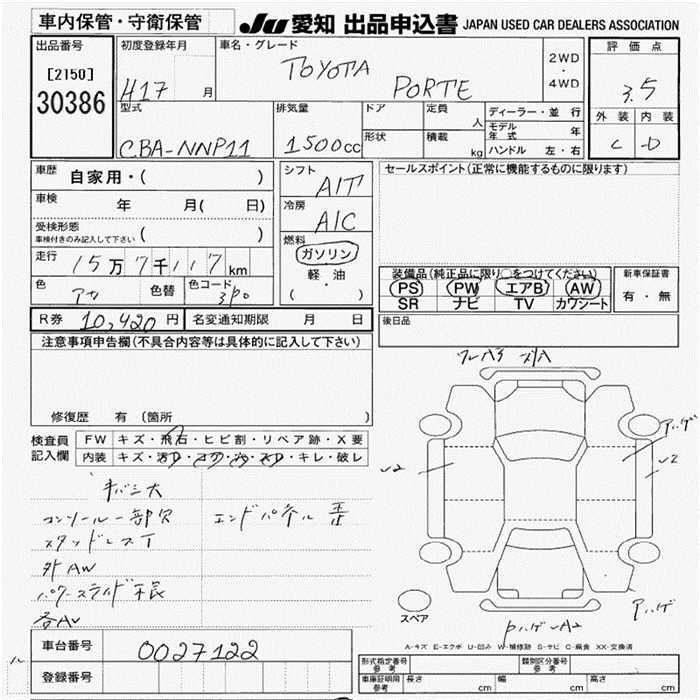 車内保管・守衛保管 JU 愛知 出品申込書 JAPAN USED CAR DEALERS ASSOCIATION
出品番号 初度登録年月 車名・グレード 評価点
[2150] H17 月 TOYOTA PORTE 2WD・4WD 3.5
30386
型式 排気量 ドア 定員 人 ディーラー・並行 外装 内装
CBA-NNP11 1500cc 形状 積載 kg モデル年式 年 C D
ハンドル 左・右
車歴 自家用・( ) シフト AIT セールスポイント(正常に機能するものに限ります)
車検 年 月( 日) 冷房 AIC
受検形態 車検付きのみ記入して下さい ( ) 燃料
ガソリン
走行 15万7千117km 軽油 装備品(純正品に限り○をつけてください) 新車保証書
色 アカ 色替 色コード 3P0 ( ・ ) PS PW エアB AW 有・無
SR ナビ TV カワシート
R券 10,420円 名変通知期限 月 日 後日品
注意事項申告欄(不具合内容等は具体的に記入して下さい)
修復歴 有 (箇所
検査員記入欄 FW キズ・飛石・ヒビ割・リペア跡・X要
内装 キズ・汚レ・コゲ・穴・スレ・キレ・破レ
キバミ大
コンソール一部欠 エンドパネル
スタッドレスT
外AW
パワースライド不良
アハゲ
U2
U2
アハゲ
スペア
PハゲA2
車台番号 0027122
A-キズ E-エクボ U-凹み W-補修跡 S-サビ C-腐食 XX-交換済
登録番号
形式指定番号 参考 類別区分番号 参考
車庫証明用 参考 長さ cm 幅 cm 高さ cm